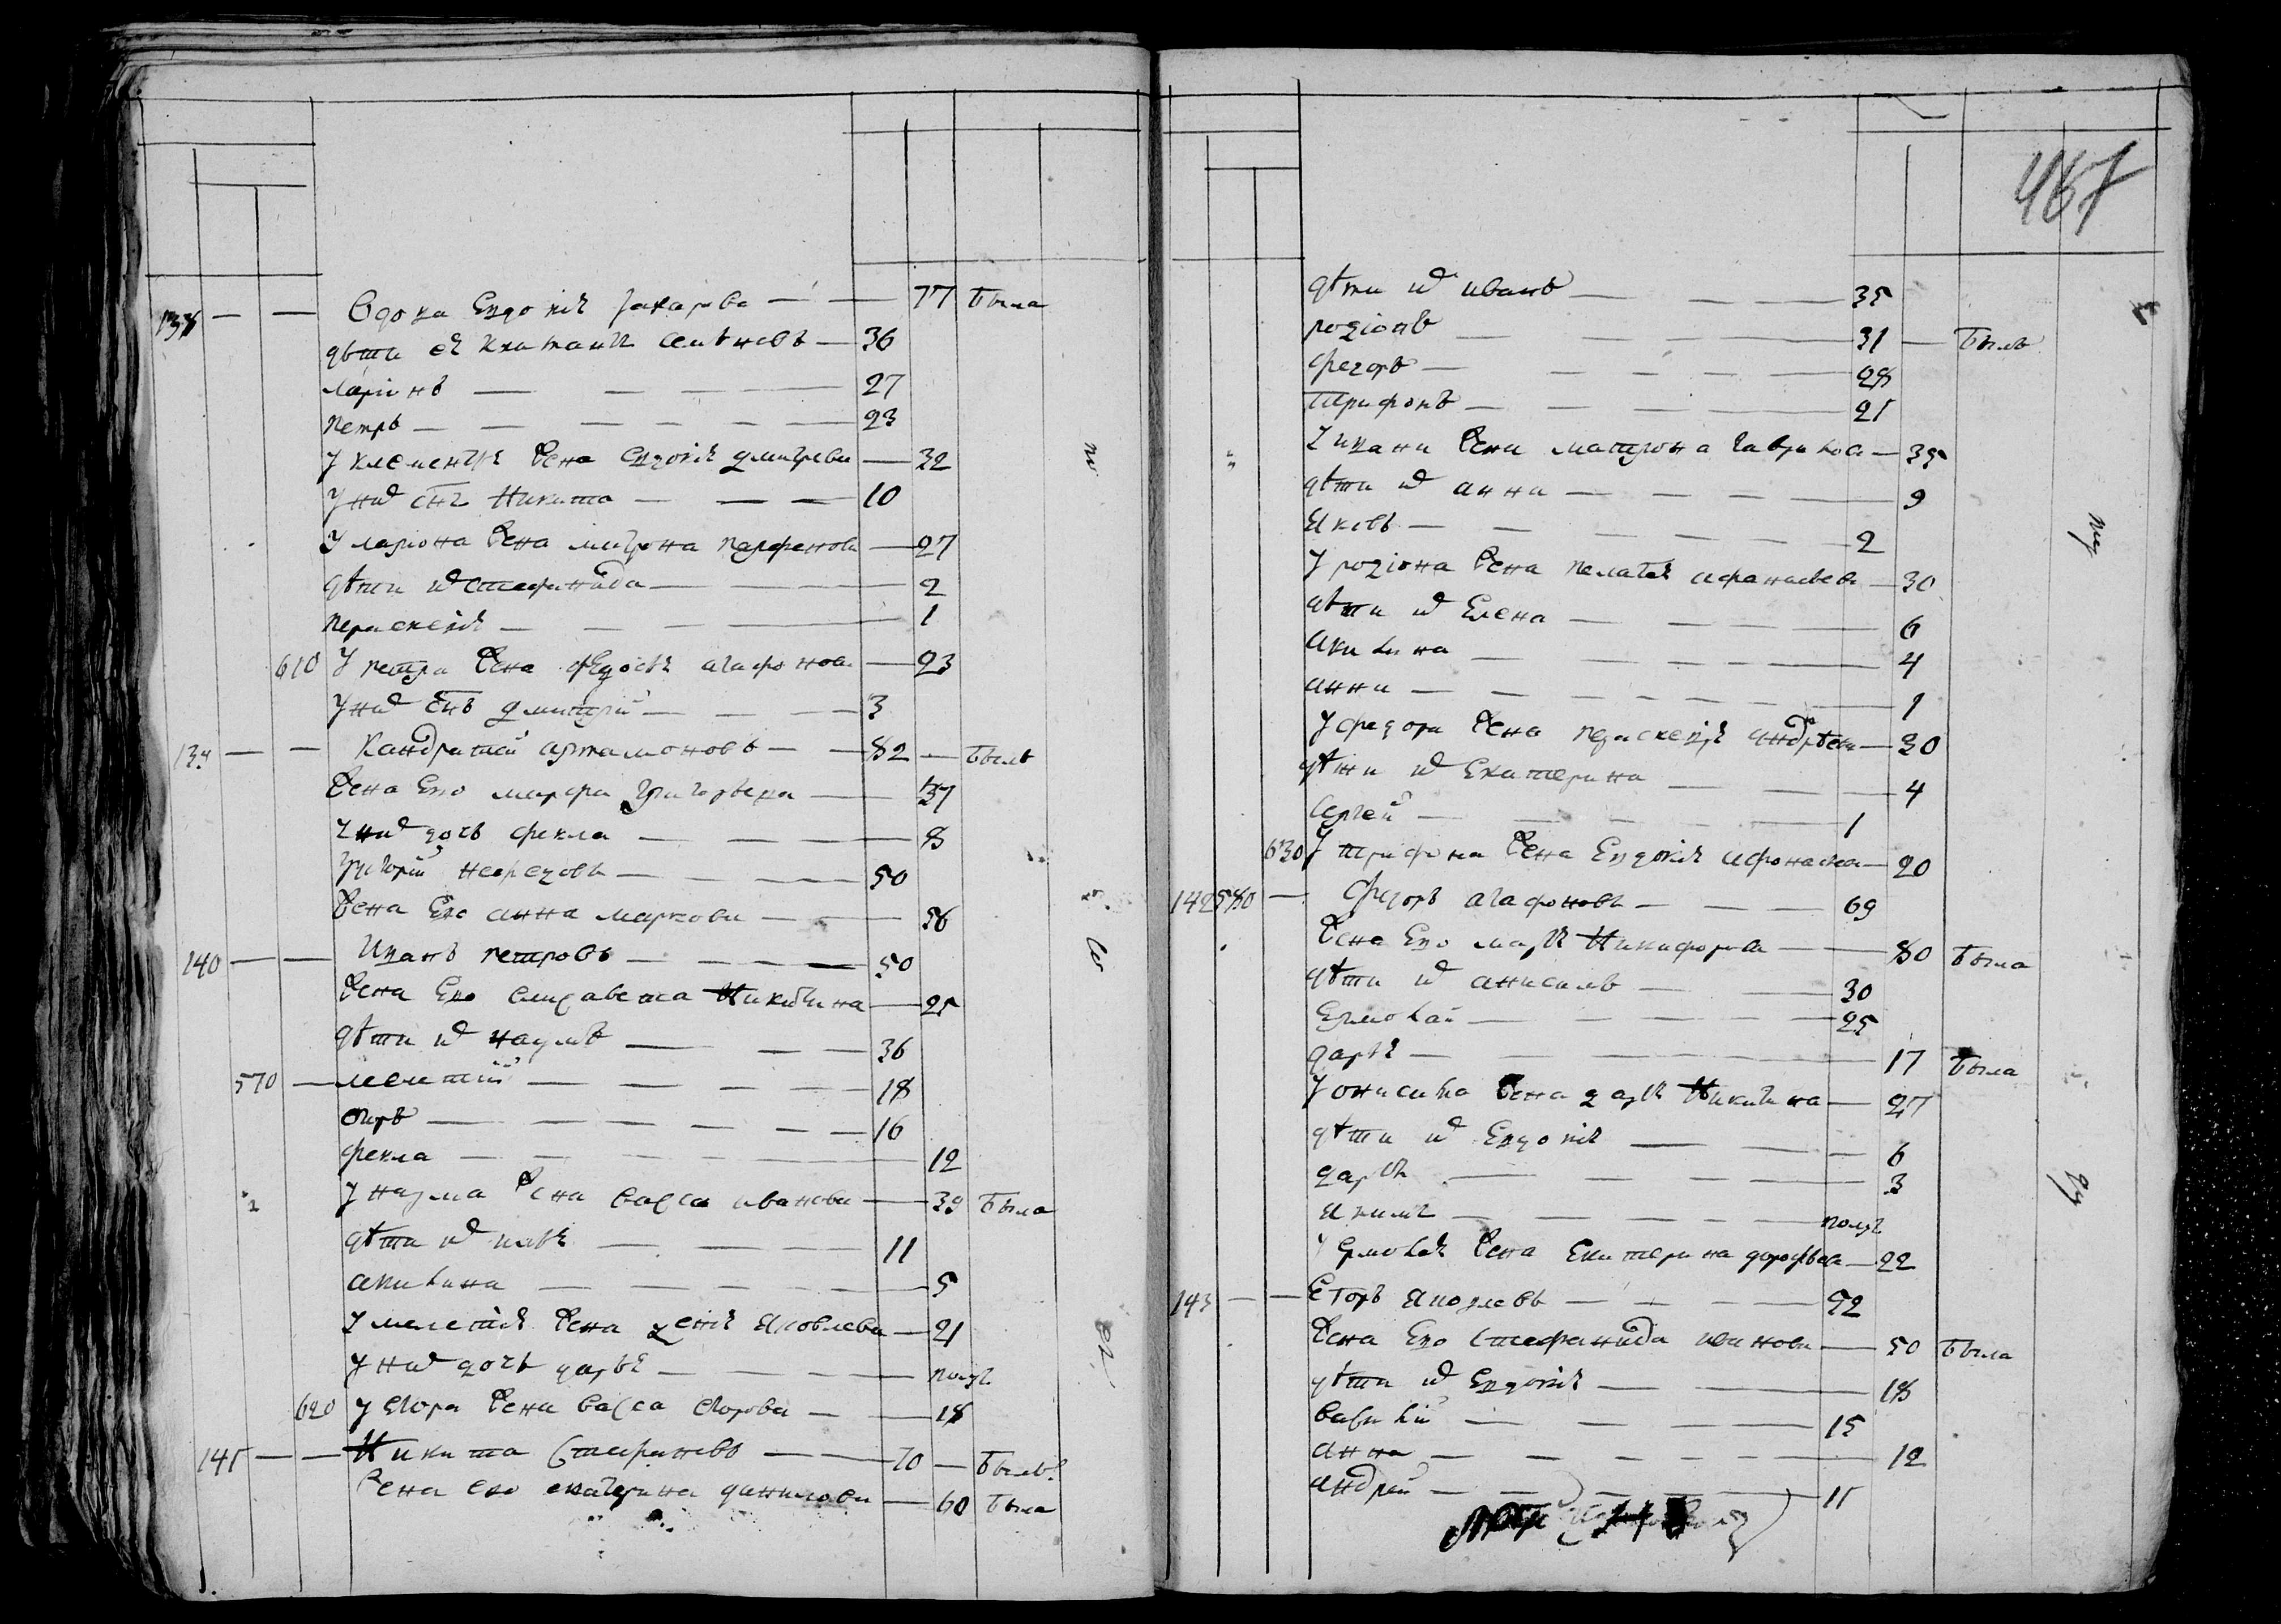 138 — — Вдова Евдокия Захарова — — 77 Была
дѣти ея Климантъ Семѣновъ — 36
Ларионъ — — — — 27
Петръ — — — — — 23
У Клементия жена Евдокия Дмитрева — 32
У них снъ Никита — — — 10
У Лариона жена Матрона Парфенова — 27
дѣти их Стефанида — — 2
Парасковия — — — — 1
610 У Петра жена Федосья Агафонова — 23
У них снъ Дмитрий — — — 3
139 — — Кандратий Артамоновъ — — 82 — Былъ
Жена Ево Марфа Григорьева — 37
У них дочь Фекла — — — 8
Григорий Нефедовъ — — — 50
Жена Ево Анна Маркова — — 56
140 — — Иванъ Петровъ — — — — 50
Жена Ево Елисавета Никитина — 25
дѣти их Наумъ — — — 36
570 — Мелетий — — — — 18
Егоръ — — — — — — 16
Фекла — — — — — — 12
У Наума жена Васса Иванова — 39 Была
дѣти их — — — — 11
Акилина — — — — — 5
У Мелетия жена Ксения Яковлева — 21
У них дочь Дарья — — — — полуг.
620 У Егора жена Васса Егорова — — 18
141 — — Никита Стефановъ — — 70 — Былъ
Жена ево Екатерина Данилова — 60 Была
467
дѣти их Иванъ — — — — 35
Родионъ — — — — 31 — Былъ
Федоръ — — — — — 28
Трифонъ — — — — 21
У Ивана жена Матрона Гаврилова — 35
дѣти их Анна — — — — 9
Яковъ — — — — — — 2
У Родиона жена Пелагея Афанасьева — 30
дѣти их Елена — — — — 6
Акилина — — — — — 4
Анна — — — — — — — 1
У Федора жена Параскевия Андрѣева — 30
дѣти их Екатерина — — — 4
Сергей — — — — — 1
630 У Трифона жена Евдокия Афонасева — 20
142 580 — Федоръ Агафоновъ — — — 69
Жена Ево Марья Никифорова — — 80 Была
дѣти их Анисимъ — — — 30
Ермолай — — — — — 25
Дарья — — — — — — 17 Была
У Онисима жена Дарья Никитина — 27
дѣти их Евдокия — — — 6
Дарья — — — — — 3
Якимъ — — — — — — полуг.
У Ермолая жена Екатерина Дорофѣева — 22
143 — — Егоръ Яковлевъ — — — — 52
Жена Ево Стефанида Иванова — 50 Была
дѣти их Евдокия — — — 18
Василий — — — — 15
Анна — — — — — — 12
Андрей — — — — — 11